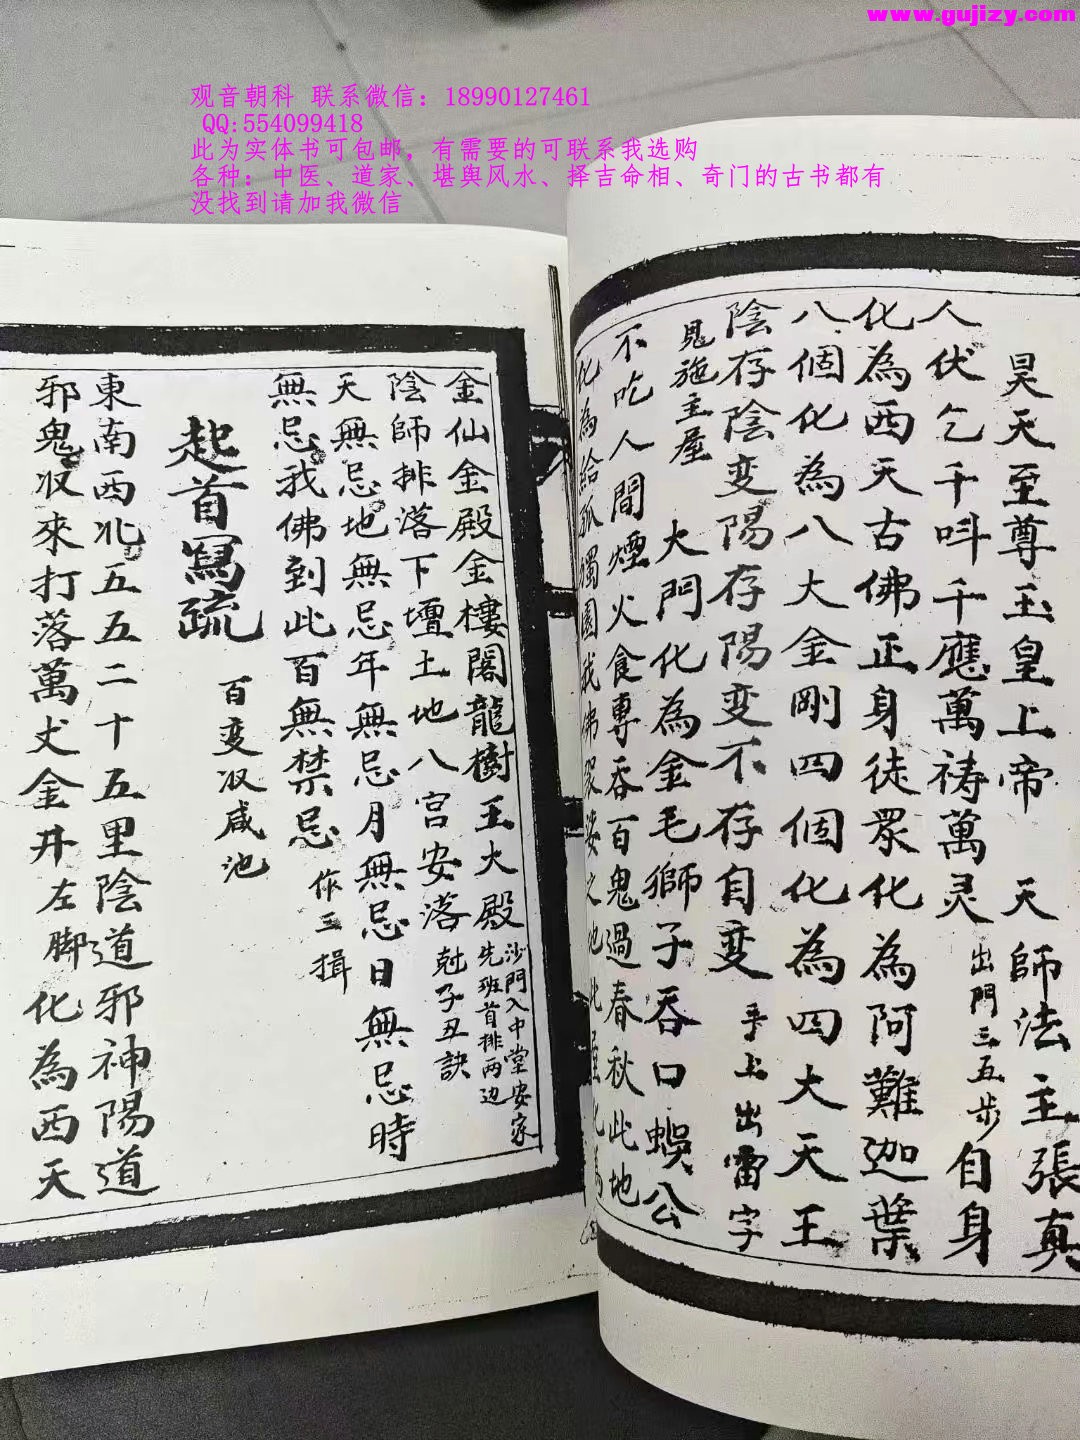 www.gujizy.com
观音朝科 联系微信：18990127461
QQ:554099418
此为实体书可包邮，有需要的可联系我选购
各种：中医、道家、堪舆风水、择吉命相、奇门的古书都有
没找到请加我微信
昊天至尊玉皇上帝 天師法主張真
人伏乞千呌千應萬祷萬灵 出門三五步 自身
化為西天古佛正身徒眾化為阿難迦葉
八個化為八大金剛四個化為四大天王
陰存陰变陽存陽变不存自变 手上出雷字
見施主屋 大門化為金毛獅子吞口蜈公
不吃人間煙火食專吞百鬼過春秋此地
化為給孤獨園我佛眾娑之地此 化為
金仙金殿金樓閣龍樹王大殿 沙門入中堂安家
先班首排兩边
陰師排落下壇土地八宫安落 尅子丑訣
天無忌地無忌年無忌月無忌日無忌時
無忌我佛到此百無禁忌 作三揖
起首寫疏 百变収咸池
東南西北五五二十五里陰道邪神陽道
邪鬼収來打落萬丈金井 左脚 化為西天